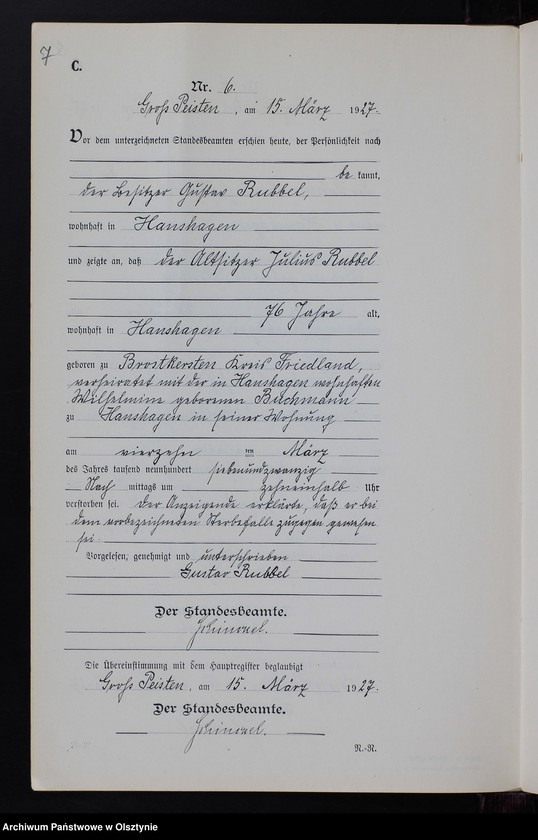 7
C.
Nr. 6.
Gross Peisten, am 15. März 1927.
Vor dem unterzeichneten Standesbeamten erschien heute, der Persönlichkeit nach
be kannt,
der Besitzer Gustav Rubbel,
wohnhaft in Hanshagen
und zeigte an, daß der Altsitzer Julius Rubbel
76 Jahre alt,
wohnhaft in Hanshagen
geboren zu Brostkersten Kreis Friedland,
verheiratet mit der in Hanshagen wohnhaften
Wilhelmine geborenen Buchmann
zu Hanshagen in seiner Wohnung
am vierzehn ten März
des Jahres tausend neunhundert siebenundzwanzig
Nach mittags um zehneinhalb Uhr
verstorben sei. Der Anzeigende erklärte, daß er bei
dem vorbezeichneten Sterbefalle zugegen gewesen
sei.
Vorgelesen, genehmigt und unterschrieben
Gustav Rubbel
Der Standesbeamte.
Die Übereinstimmung mit dem Hauptregister beglaubigt
Gross Peisten, am 15. März 1927.
Der Standesbeamte.
N.-R.
Archiwum Państwowe w Olsztynie